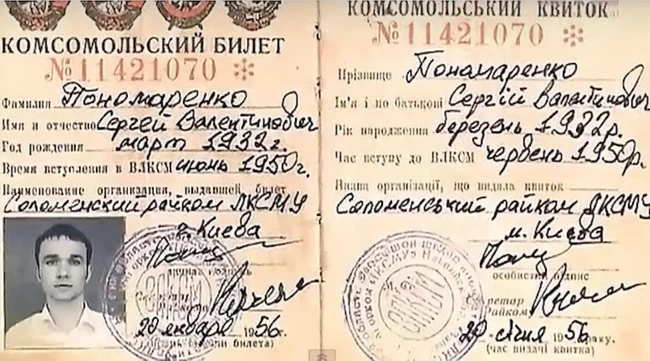 КОМСОМОЛЬСКИЙ БИЛЕТ
№11421070
Фамилия Пономаренко
Имя и отчество Сергей Валентинович
Год рождения март 1932 г.
Время вступления в ВЛКСМ июнь 1950 г.
Наименование организации, выдавшей билет
Соломенский райком ЛКСМУ
г. Киева
20 января 1956 г.
КОМСОМОЛЬСЬКИЙ КВИТОК
№11421070
Прізвище Пономаренко
Ім'я і по батькові Сергій Валентинович
Рік народження березень 1932 р.
Час вступу до ВЛКСМ червень 1950 р.
Назва організації, що видала квиток
Соломенський райком ЛКСМУ
м. Києва
особистий підпис
20 січня 1956 року.
(час видачі квитка)